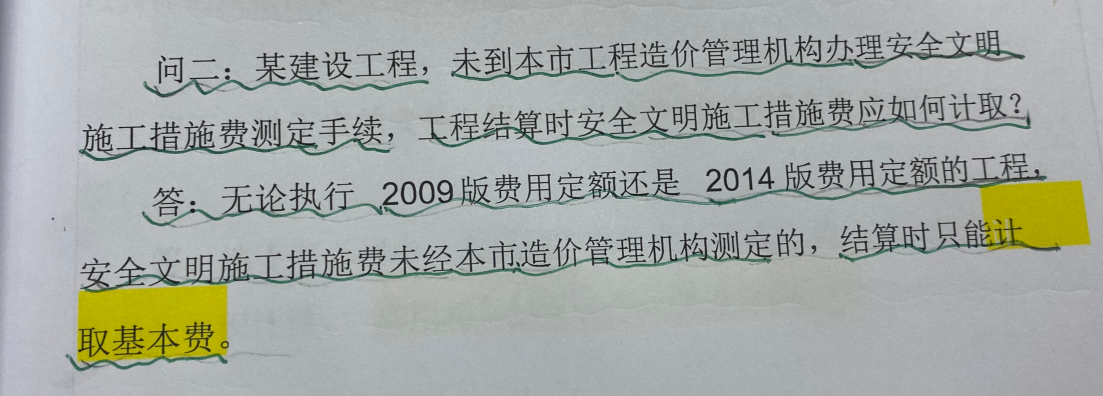 问二：某建设工程，未到本市工程造价管理机构办理安全文明
施工措施费测定手续，工程结算时安全文明施工措施费应如何计取？
答：无论执行 2009版费用定额还是 2014版费用定额的工程，
安全文明施工措施费未经本市造价管理机构测定的，结算时只能计
取基本费。